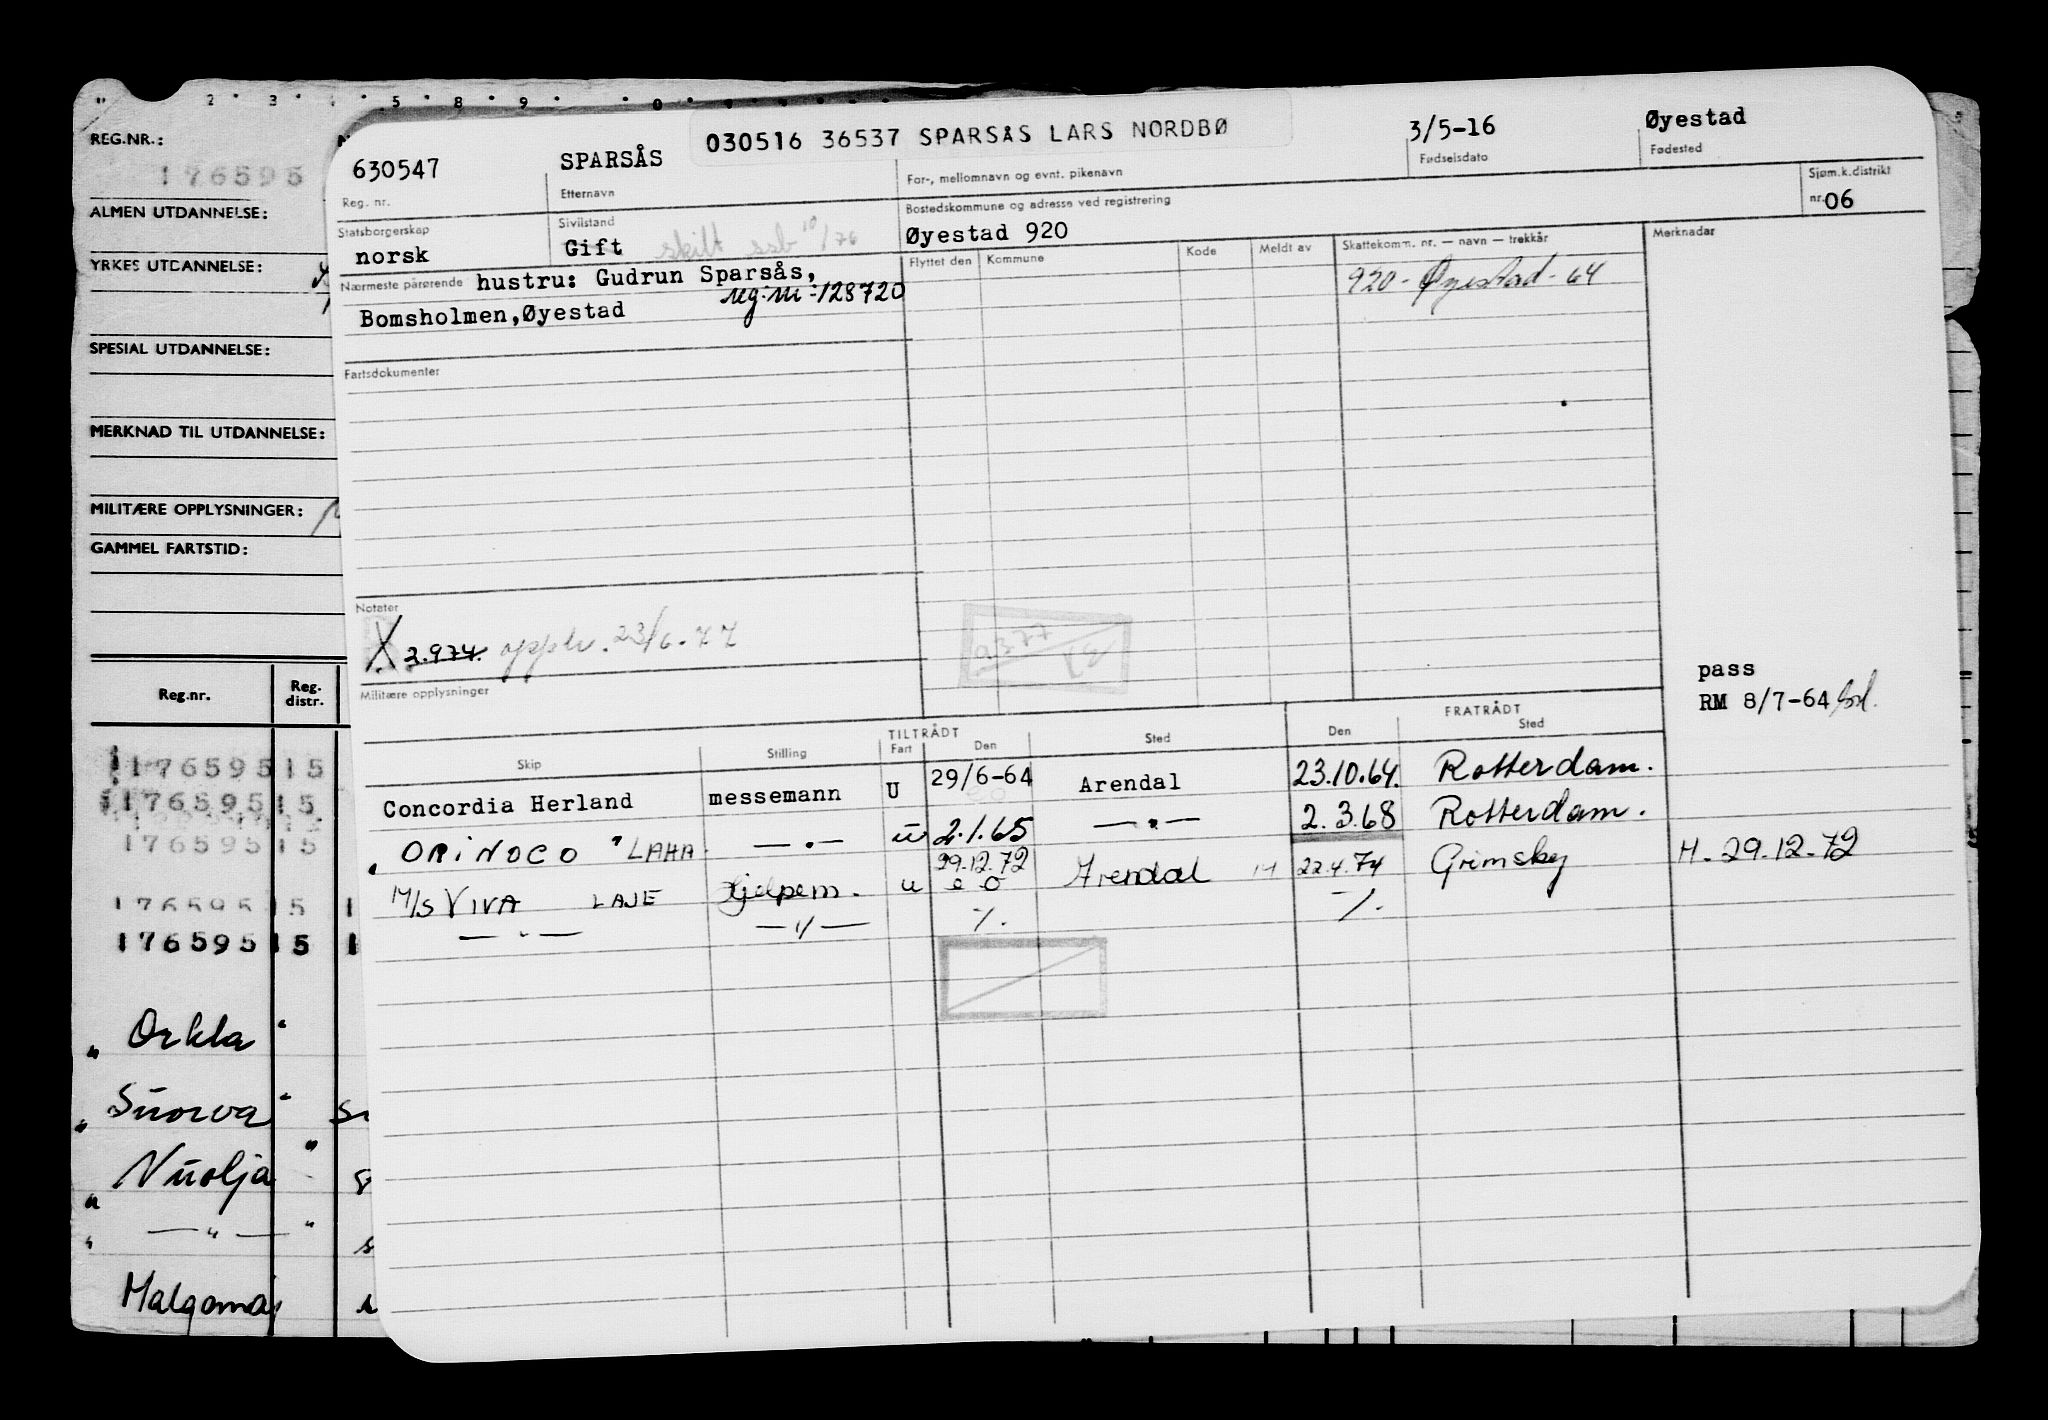 2 3 4 5 8 9 0
REG.NR.:
176595
ALMEN UTDANNELSE:
YRKES UTDANNELSE:
SPESIAL UTDANNELSE:
MERKNAD TIL UTDANNELSE:
MILITÆRE OPPLYSNINGER:
GAMMEL FARTSTID:
Reg.nr. Reg. distr.
176595 15
176595 15
176595 15
176595 15 1
176595 15 1
" Orkla "
" Suorva "
" Nuolja "
" — " — "
Malgomaj
630547 SPARSÅS 030516 36537 SPARSÅS LARS NORDBØ 3/5-16 Øyestad
Reg. nr. Etternavn For-, mellomnavn og evnt. pikenavn Fødselsdato Fødested
Statsborgerskap Sivilstand Bostedskommune og adresse ved registrering Sjøm.k.distrikt
norsk Gift skilt ssb 10/76 Øyestad 920 nr. 06
Nærmeste pårørende hustru: Gudrun Sparsås, Flyttet den Kommune Kode Meldt av Skattekomm. nr. — navn — trekkår Merknadar
Bomsholmen,Øyestad reg.nr:128720 920- Øyestad - 64
Fartsdokumenter
Notater
X 2.974. opplv. 23/6-77
Militære opplysninger
pass
RM 8/7-64
TILTRÅDT FRATRÅDT
Skip Stilling Fart Den Sted Den Sted
Concordia Herland messemann U 29/6-64 Arendal 23.10.64. Rotterdam.
" ORINOCO " LAHA. — " — u 2.1.65 — " — 2.3.68 Rotterdam.
M/S VIVA LAJE Hjelpem. u 29.12.72 Arendal 22.4.74 Grimsby H. 29.12.72
— " — — " — -/. -/.